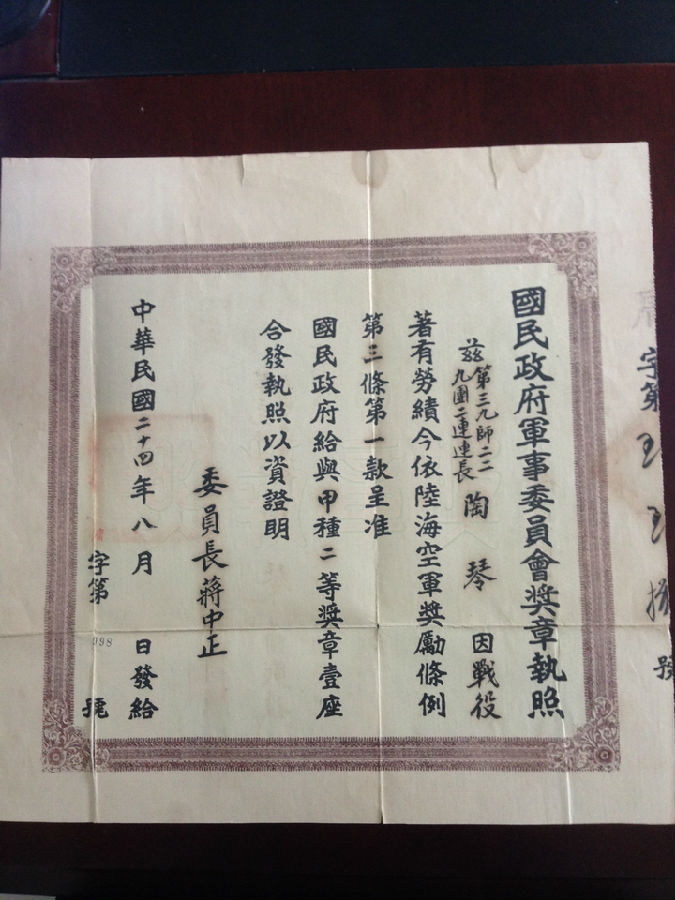 國民政府軍事委員會獎章執照
茲第三九師二二
九團二連連長陶琴因戰役
著有勞績今依陸海空軍獎勵條例
第三條第一款呈准
國民政府給與甲種二等獎章壹座
合發執照以資證明
委員長蔣中正
中華民國二十四年八月 日發給
字第998號
字第
號